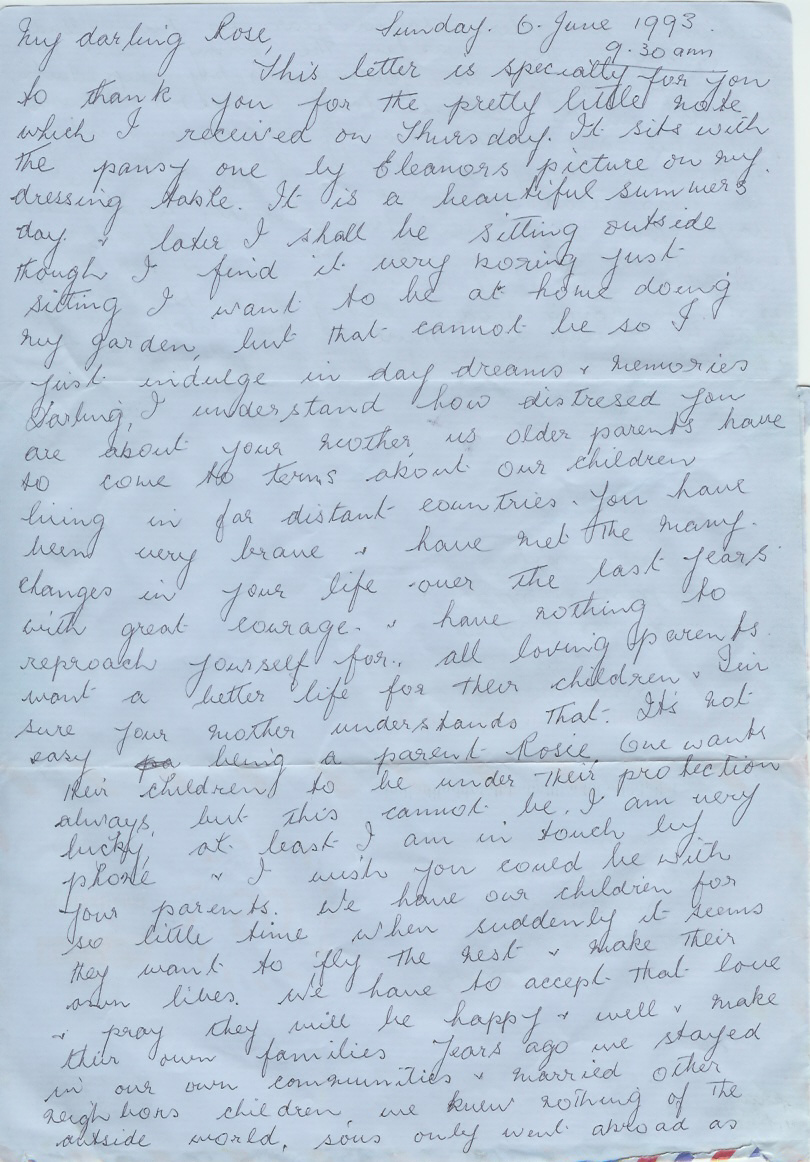 My darling Rose, Sunday. 6. June 1993.
9.30 am
This letter is specially for you
to thank you for the pretty little note
which I received on Thursday. It sits with
the pansy one by Eleanors picture on my.
dressing table. It is a beautiful summers
day. & later I shall be sitting outside
though I find it very boring just
sitting I want to be at home doing
my garden, but that cannot be so I
just indulge in day dreams & memories
Darling, I understand how distresed you
are about your mother, us older parents have
to come to terms about our children
living in far distant countries. You have
been very brave & have met the many.
changes in your life over the last years
with great courage. & have nothing to
reproach yourself for., all loving parents.
want a better life for their children & I'm
sure your mother understands that. It's not
easy being a parent Rosie, One wants
their children to be under their protection
always, but this cannot be. I am very
lucky, at least I am in touch by
phone & I wish you could be with
your parents. We have our children for
so little time when suddenly it seems
they want to fly the nest & make their
own lives. We have to accept that love
& pray they will be happy & well & make
their own families years ago we stayed
in our own communities & married other
neighbors children, we knew nothing of the
outside world, sons only went abroad as